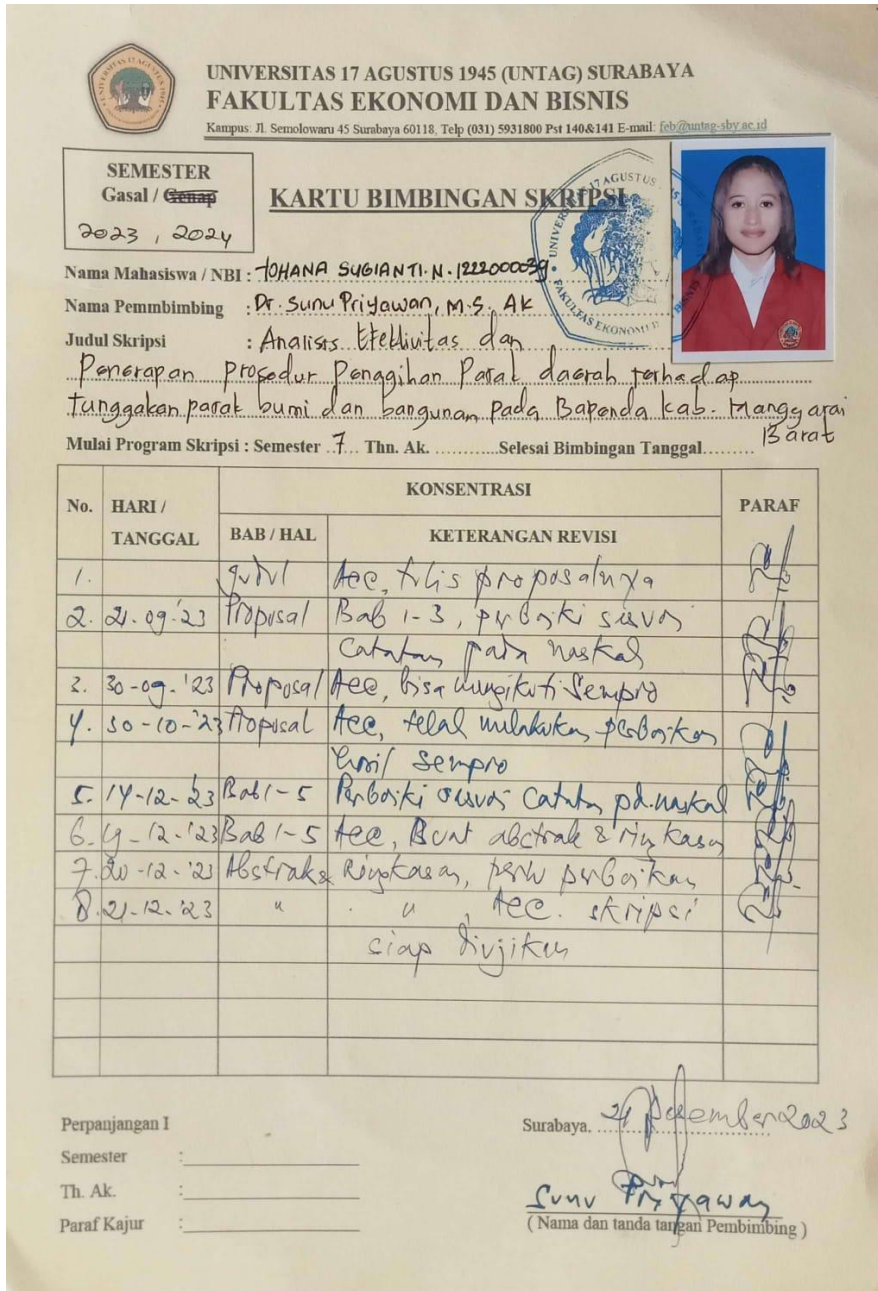 UNIVERSITAS 17 AGUSTUS 1945 (UNTAG) SURABAYA
FAKULTAS EKONOMI DAN BISNIS
Kampus: Jl. Semolowaru 45 Surabaya 60118, Telp (031) 5931800 Pst 140&141 E-mail: feb@untag-sby.ac.id
SEMESTER
Gasal / Genap
2023 , 2024
KARTU BIMBINGAN SKRIPSI
Nama Mahasiswa / NBI : YOHANA SUGIANTI.N.1222000039.
Nama Pemmbimbing : Dr. Sunu Priyawan, M.S. AK
Judul Skripsi : Analisis Efektivitas dan
Penerapan prosedur Penggihan Pajak daerah terhadap
tunggakan pajak bumi dan bangunan pada Bapenda kab. Manggarai
Barat
Mulai Program Skripsi : Semester 7 Thn. Ak. ............Selesai Bimbingan Tanggal.........
No. HARI / TANGGAL KONSENTRASI PARAF
BAB / HAL KETERANGAN REVISI
1. Judul Acc, tulis proposalnya
2. 21-09-'23 Proposal Bab 1-3, perbaiki sesuai
catatan pada naskah
3. 30-09-'23 Proposal Acc, bisa mengikuti Sempro
4. 30-10-'23 Proposal Acc, telah melakukan perbaikan
hasil Sempro
5. 14-12-'23 Bab 1-5 Perbaiki sesuai catatan pd. naskah
6. 19-12-'23 Bab 1-5 Acc, Buat abstrak & ringkasan
7. 20-12-'23 Abstrak & Ringkasan, perlu perbaikan
8. 21-12-'23 " " , Acc. skripsi
siap diujikan
Perpanjangan I
Semester :
Th. Ak. :
Paraf Kajur :
Surabaya, 21 Desember 2023
Sunu Priyawan
( Nama dan tanda tangan Pembimbing )